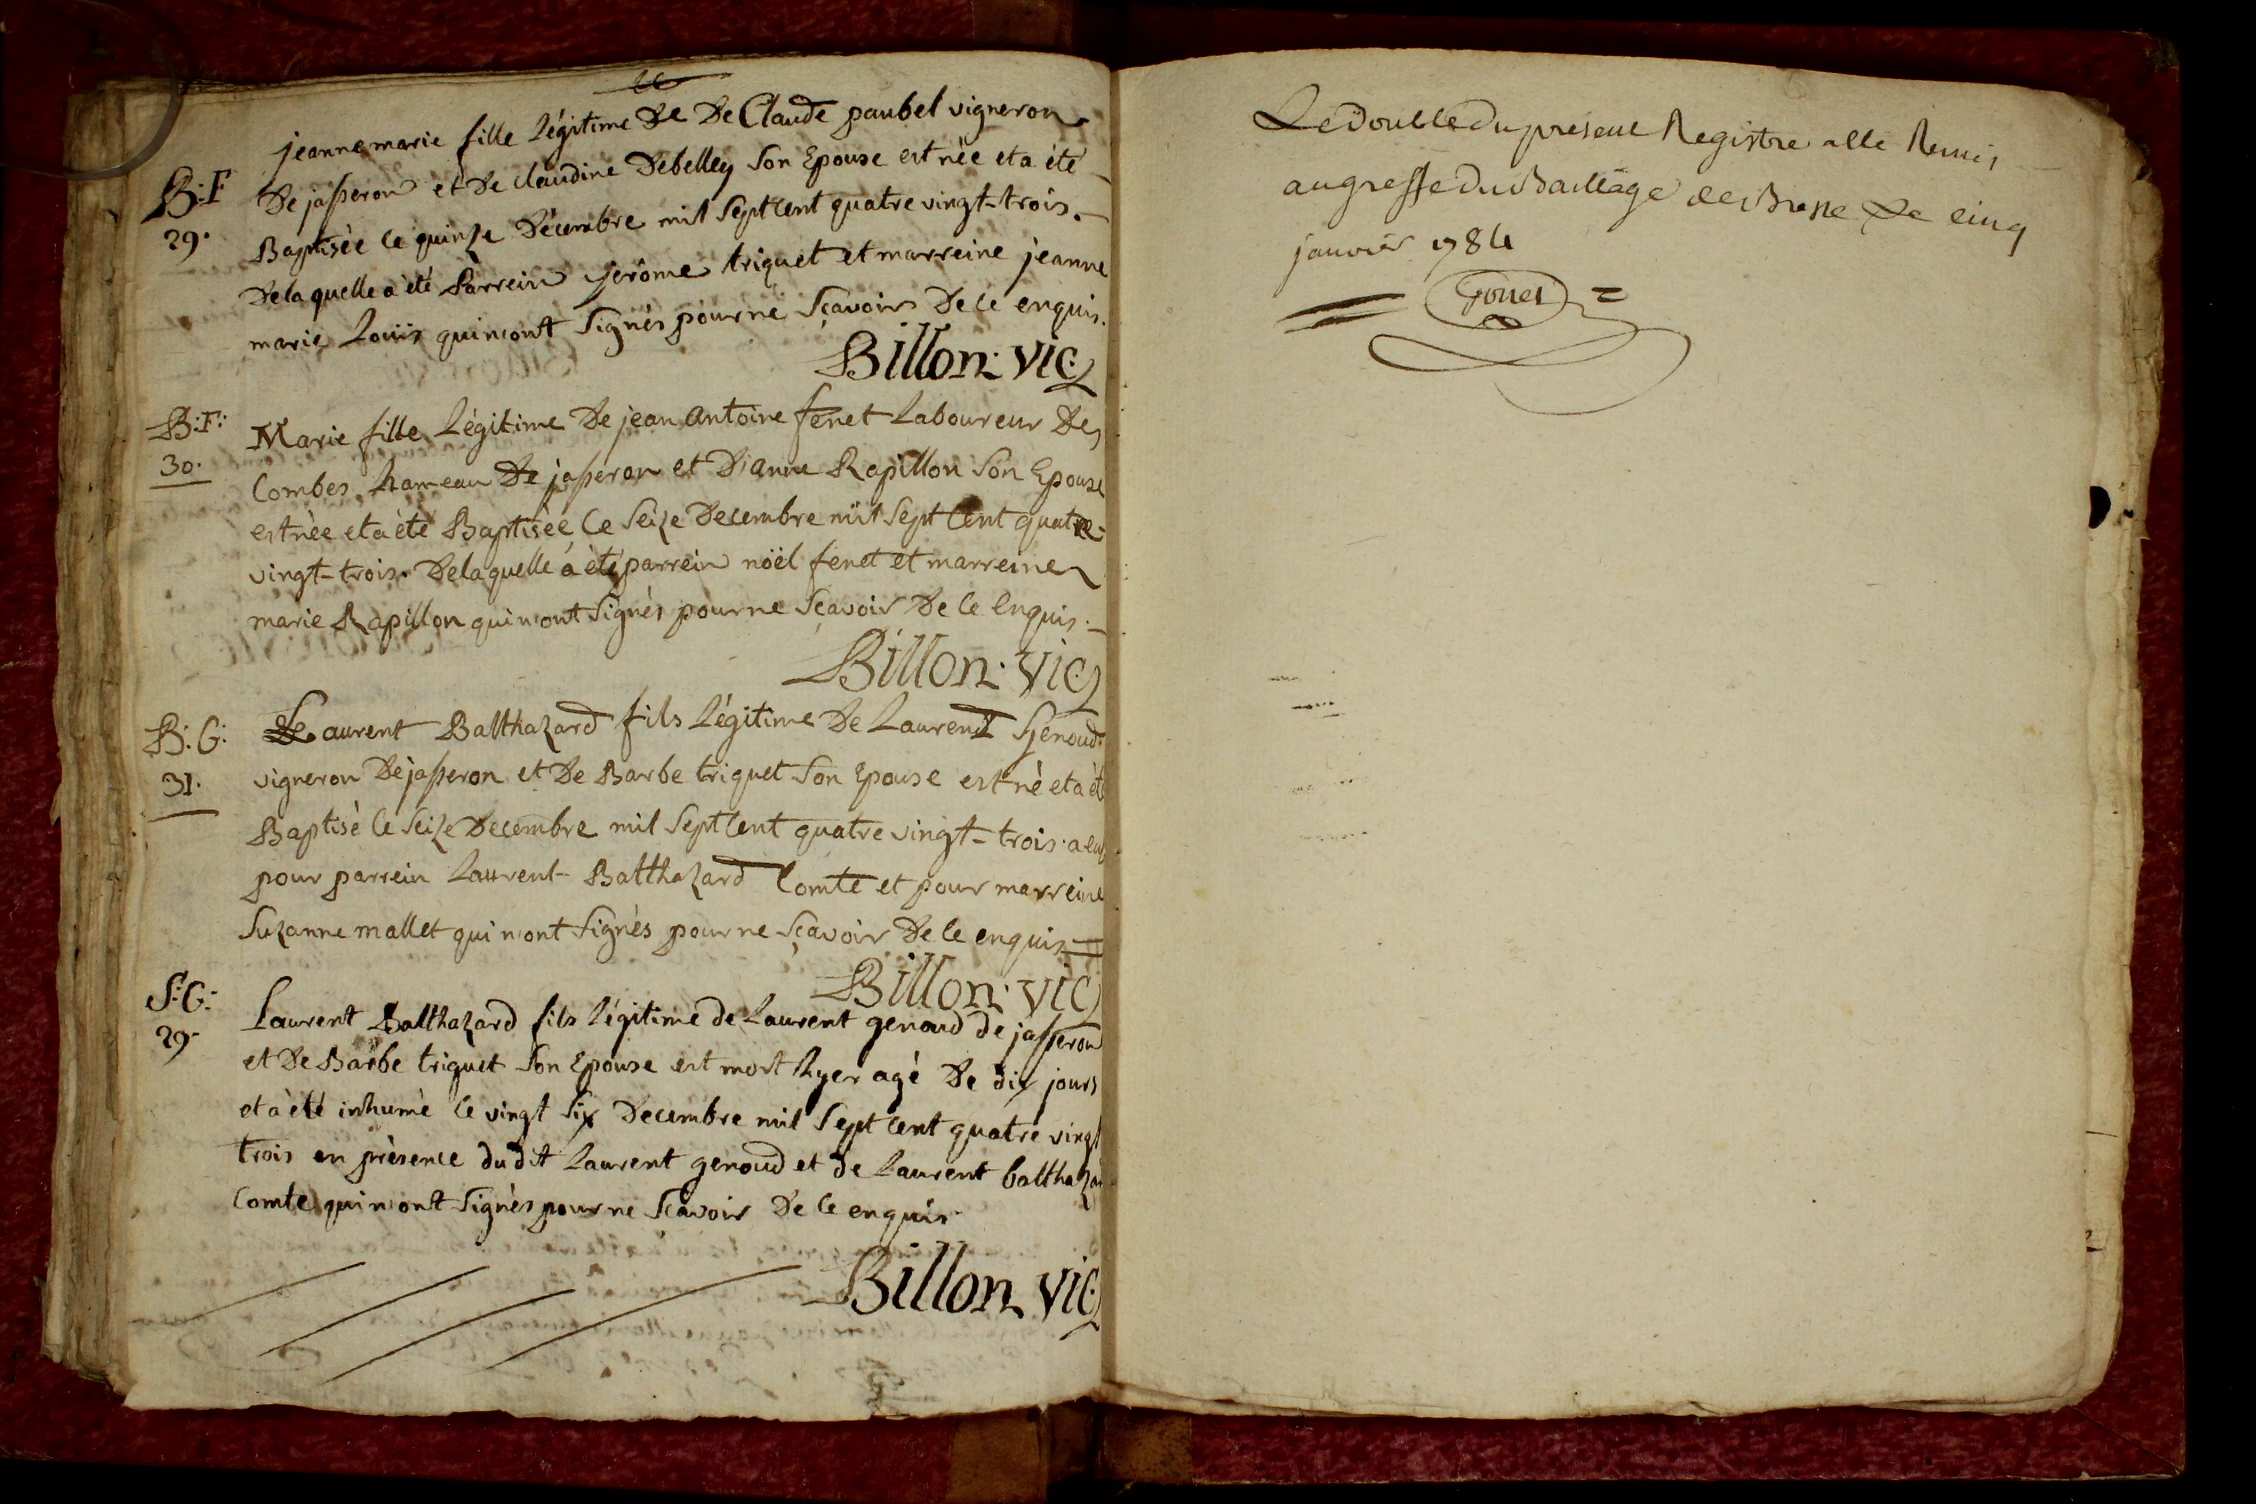 jeanne marie fille légitime De De Claude paubel vigneron
B: F
De jasseron et De claudine Debelley son Epouse est née et a été
29.
Baptisée le quinze Décembre mil sept cent quatre vingt-trois.
De laquelle a été Parrein jerôme triquet et marreine jeanne
marie Louis qui n'ont signés pour ne sçavoir De ce enquis.
Billon: vic:
B: F:
Marie fille Légitime De jean antoine fenet Laboureur Des
30.
Combes hameau De jasseron et D'anne Rapillon son Epouse
est née et a été Baptisée le seize Decembre mil sept cent quatre-
vingt-trois. De laquelle a été parrein noël fenet et marreine
marie Rapillon qui n'ont signés pour ne sçavoir De ce enquis.
Billon: vic:
B: G:
Laurent Balthazard fils légitime De Laurent Genoud
31.
vigneron De jasseron et De Barbe triquet son Epouse est né et a été
Baptisé le seize Decembre mil sept cent quatre vingt-trois. a eu
pour parrein Laurent-Balthazard Comte et pour marreine
Suzanne mallet qui n'ont signés pour ne sçavoir De ce enquis
Billon: vic:
S: G:
Laurent Balthazard fils légitime de Laurent genoud de jasseron
29.
et De Barbe triquet son Epouse est mort hyer agé De dix jours
et a été inhumé le vingt six Decembre mil sept cent quatre vingt
trois en présence dudit Laurent genoud et de Laurent balthazar
Comte qui n'ont signés pour ne scavoir De ce enquis
Billon vic:
Le Double du present Registre a Été Remis
au greffe du Bailliage de Bresse Le cinq
janvier 1784